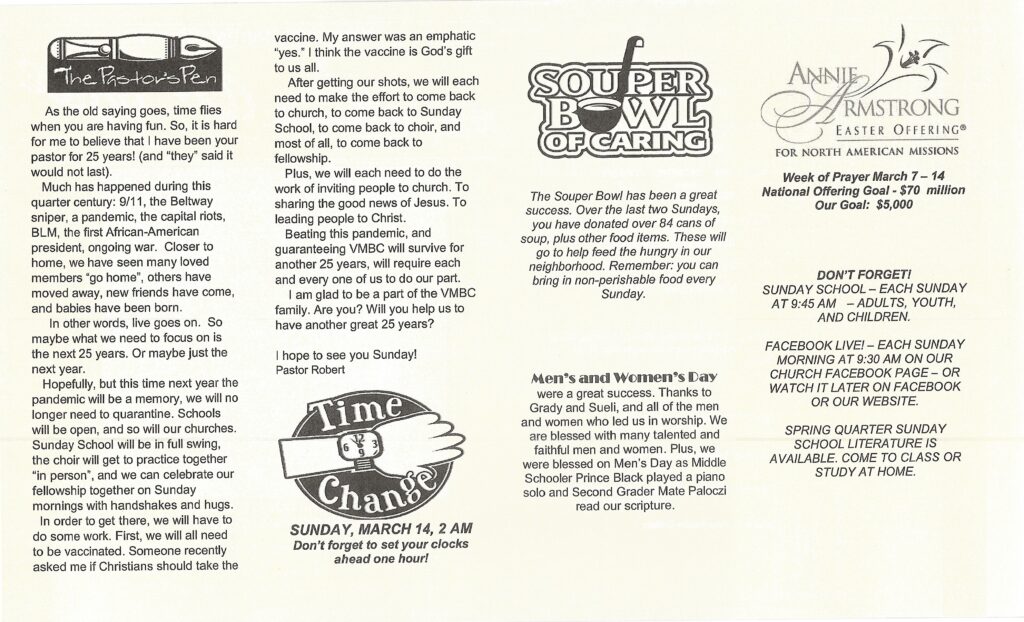 The Pastor's Pen
As the old saying goes, time flies
when you are having fun. So, it is hard
for me to believe that I have been your
pastor for 25 years! (and "they" said it
would not last).
Much has happened during this
quarter century: 9/11, the Beltway
sniper, a pandemic, the capital riots,
BLM, the first African-American
president, ongoing war. Closer to
home, we have seen many loved
members "go home", others have
moved away, new friends have come,
and babies have been born.
In other words, live goes on. So
maybe what we need to focus on is
the next 25 years. Or maybe just the
next year.
Hopefully, but this time next year the
pandemic will be a memory, we will no
longer need to quarantine. Schools
will be open, and so will our churches.
Sunday School will be in full swing,
the choir will get to practice together
"in person", and we can celebrate our
fellowship together on Sunday
mornings with handshakes and hugs.
In order to get there, we will have to
do some work. First, we will all need
to be vaccinated. Someone recently
asked me if Christians should take the
vaccine. My answer was an emphatic
"yes." I think the vaccine is God's gift
to us all.
After getting our shots, we will each
need to make the effort to come back
to church, to come back to Sunday
School, to come back to choir, and
most of all, to come back to
fellowship.
Plus, we will each need to do the
work of inviting people to church. To
sharing the good news of Jesus. To
leading people to Christ.
Beating this pandemic, and
guaranteeing VMBC will survive for
another 25 years, will require each
and every one of us to do our part.
I am glad to be a part of the VMBC
family. Are you? Will you help us to
have another great 25 years?
I hope to see you Sunday!
Pastor Robert
Time
12
3
6
9
Change
SUNDAY, MARCH 14, 2 AM
Don't forget to set your clocks
ahead one hour!
SOUPER
BOWL
OF CARING
The Souper Bowl has been a great
success. Over the last two Sundays,
you have donated over 84 cans of
soup, plus other food items. These will
go to help feed the hungry in our
neighborhood. Remember: you can
bring in non-perishable food every
Sunday.
Men's and Women's Day
were a great success. Thanks to
Grady and Sueli, and all of the men
and women who led us in worship. We
are blessed with many talented and
faithful men and women. Plus, we
were blessed on Men's Day as Middle
Schooler Prince Black played a piano
solo and Second Grader Mate Paloczi
read our scripture.
ANNIE
ARMSTRONG
EASTER OFFERING®
FOR NORTH AMERICAN MISSIONS
Week of Prayer March 7 – 14
National Offering Goal - $70 million
Our Goal: $5,000
DON'T FORGET!
SUNDAY SCHOOL – EACH SUNDAY
AT 9:45 AM – ADULTS, YOUTH,
AND CHILDREN.
FACEBOOK LIVE! – EACH SUNDAY
MORNING AT 9:30 AM ON OUR
CHURCH FACEBOOK PAGE – OR
WATCH IT LATER ON FACEBOOK
OR OUR WEBSITE.
SPRING QUARTER SUNDAY
SCHOOL LITERATURE IS
AVAILABLE. COME TO CLASS OR
STUDY AT HOME.